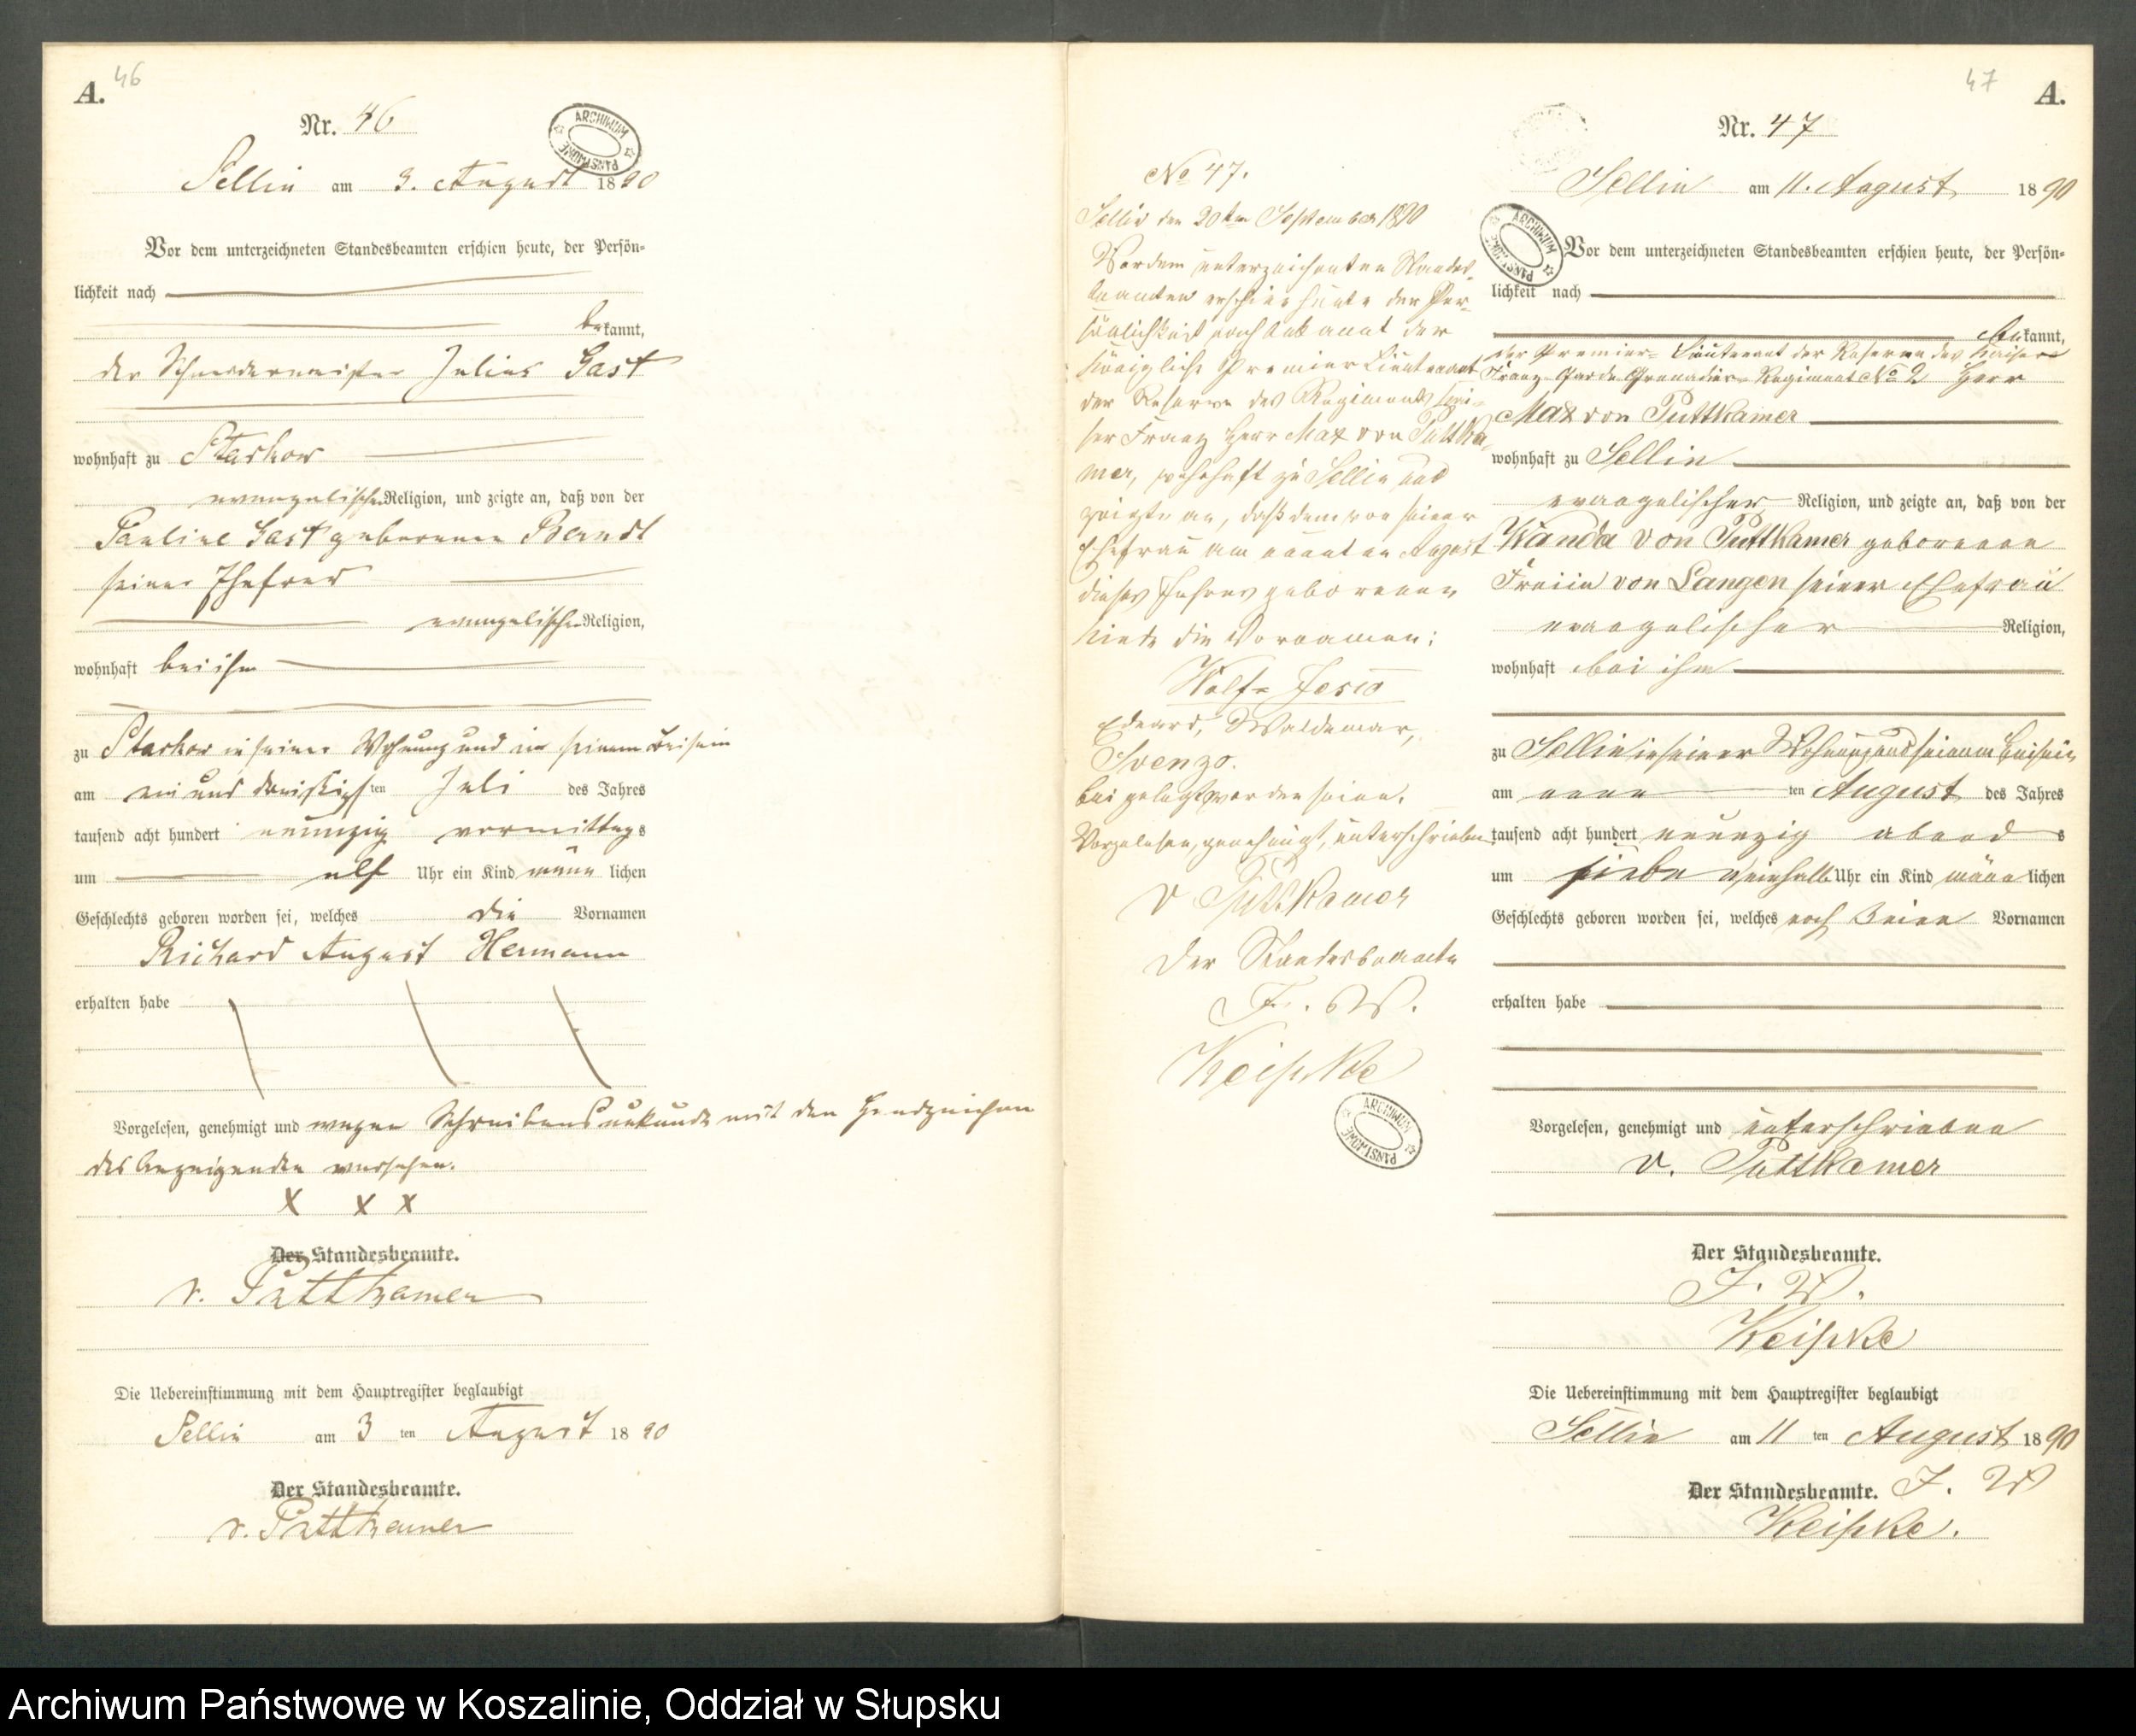 46
A.
Nr. 46
ARCHIWUM PAŃSTWOWE
Sellin am 3. August 1890
Vor dem unterzeichneten Standesbeamten erschien heute, der Persön-
lichkeit nach
bekannt,
der Schneidermeister Julius Gast
wohnhaft zu Starkow
evangelischer Religion, und zeigte an, daß von der
Pauline Gast geborenen Berndt
seiner Ehefrau
evangelischer Religion,
wohnhaft bei ihm
zu Starkow in seiner Wohnung und in seinem Beisein
am ein und dreißigsten Juli des Jahres
tausend acht hundert neunzig vormittags
um elf Uhr ein Kind männlichen
Geschlechts geboren worden sei, welches die Vornamen
Richard August Hermann
erhalten habe
Vorgelesen, genehmigt und wegen Schreibensunkunde mit den Handzeichen
des Anzeigenden versehen.
x x x
Der Standesbeamte.
v. Puttkamer
Die Uebereinstimmung mit dem Hauptregister beglaubigt
Sellin am 3 ten August 1890
Der Standesbeamte.
v. Puttkamer
No 47.
Sellin den 20ten September 1890
Vor dem unterzeichneten Standes-
beamten erschien heute der Per-
sönlichkeit nach bekannt der
Königliche Premier Lieutenant
der Reserve des Regiments Kai-
ser Franz Herr Max von Puttka-
mer, wohnhaft zu Sellin und
zeigte an, daß dem von seiner
Ehefrau am neunten August
dieses Jahres geborenen
Kinde die Vornamen:
Wolf-Jesco
Eduard, Waldemar,
Svenzo.
beigelegt worden seien.
Vorgelesen, genehmigt, unterschrieben
v Puttkamer
Der Standesbeamte
J. W.
Keipke
ARCHIWUM PAŃSTWOWE
47
A.
Nr. 47
Sellin am 11. August 1890
ARCHIWUM PAŃSTWOWE
Vor dem unterzeichneten Standesbeamten erschien heute, der Persön-
lichkeit nach
bekannt,
der Premier-Lieutenant der Reserve des Kaiser
Franz Garde Grenadier-Regiment No 2 Herr
Max von Puttkamer
wohnhaft zu Sellin
evangelischer Religion, und zeigte an, daß von der
Wanda von Puttkamer geborenen
Freiin von Langen seiner Ehefrau
evangelischer Religion,
wohnhaft bei ihm
zu Sellin in seiner Wohnung und seinem Beisein
am neun ten August des Jahres
tausend acht hundert neunzig abends
um sieben einhalb Uhr ein Kind männlichen
Geschlechts geboren worden sei, welches noch keine Vornamen
erhalten habe
Vorgelesen, genehmigt und unterschrieben
v. Puttkamer
Der Standesbeamte.
J. W.
Keipke
Die Uebereinstimmung mit dem Hauptregister beglaubigt
Sellin am 11 ten August 1890
Der Standesbeamte. J. W
Keipke.
Archiwum Państwowe w Koszalinie, Oddział w Słupsku